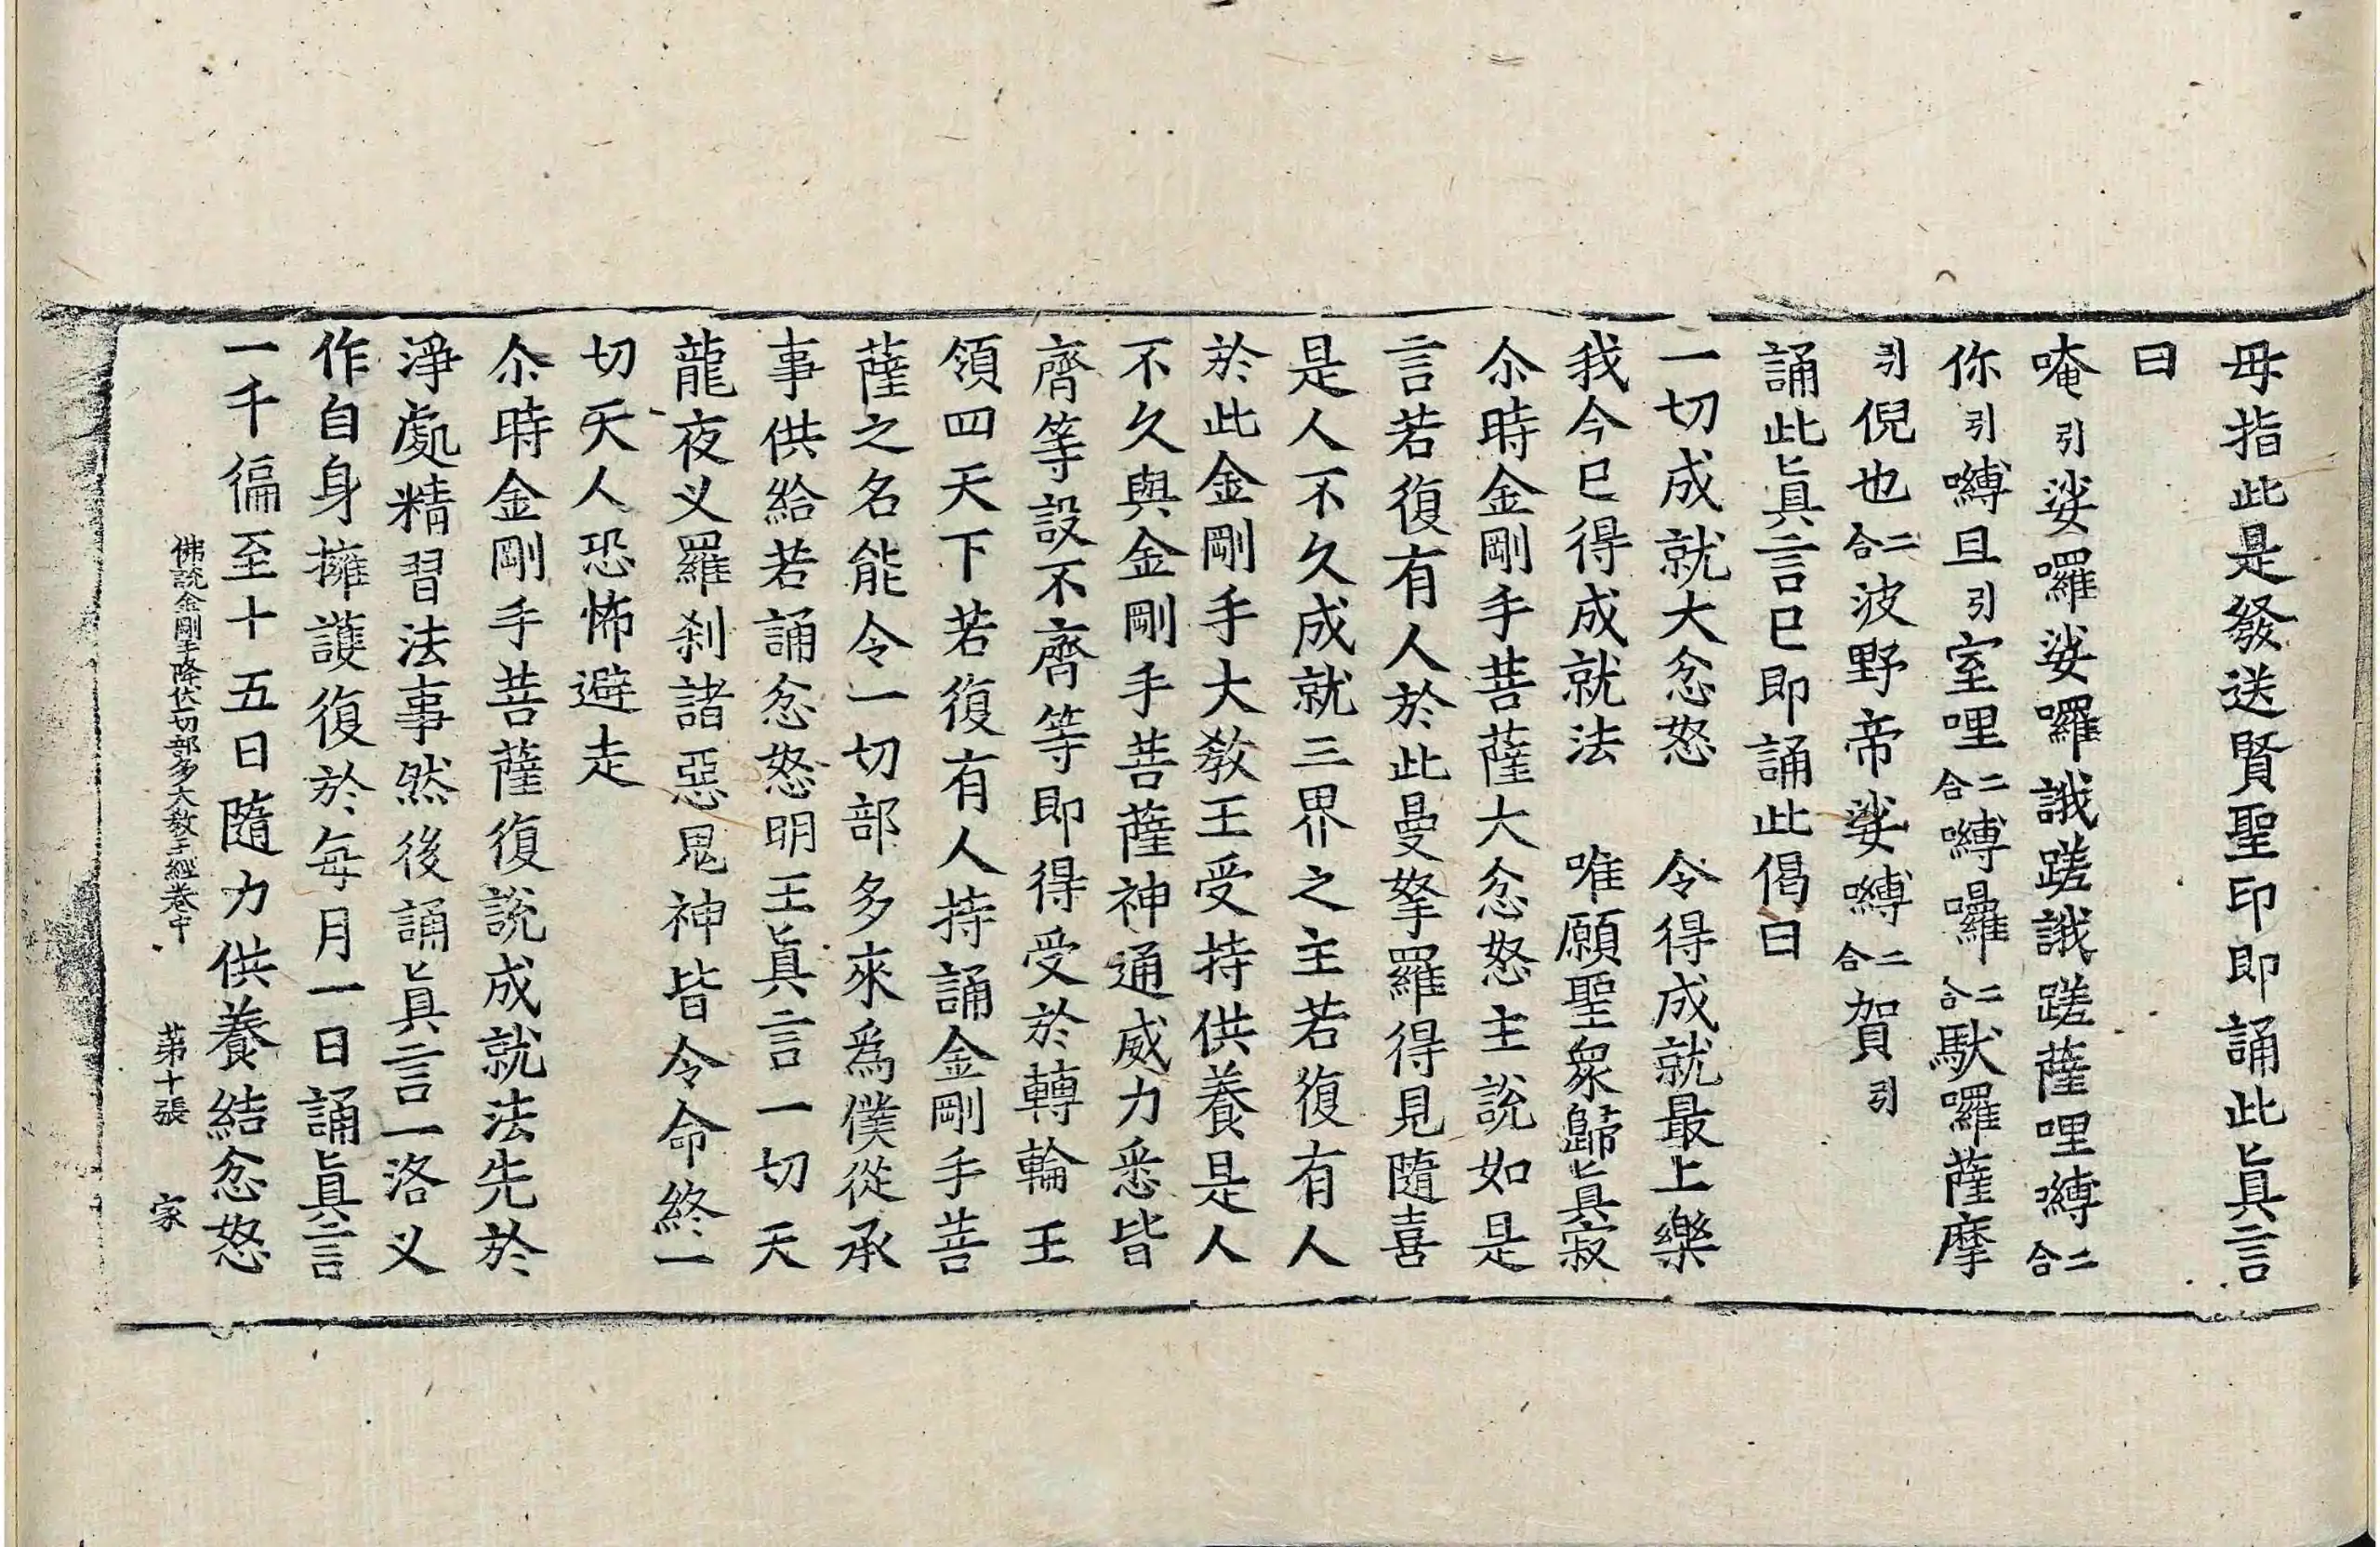 毋指此是發送賢聖印即誦此眞言
曰
唵引娑囉娑囉誐蹉誐蹉薩哩嚩二合
你引嚩且引室哩二合嚩囉二合馱囉薩摩
引倪也二合波野帝娑嚩二合賀引
誦此眞言已即誦此偈曰
一切成就大忿怒　令得成就最上樂
我今已得成就法　唯願聖衆歸眞寂
尒時金剛手菩薩大忿怒主說如是
言若復有人於此曼拏羅得見隨喜
是人不久成就三界之主若復有人
於此金剛手大教王受持供養是人
不久與金剛手菩薩神通威力悉皆
齊等設不齊等即得受於轉輪王
領四天下若復有人持誦金剛手菩
薩之名能令一切部多來爲僕從承
事供給若誦忿怒明王眞言一切天
龍夜叉羅刹諸惡鬼神皆令命終一
切天人恐怖避走
尒時金剛手菩薩復說成就法先於
淨處精習法事然後誦眞言一洛叉
作自身擁護復於每月一日誦眞言
一千徧至十五日隨力供養結忿怒
佛說金剛手降伏一切部多大教王經卷中　第十張　家